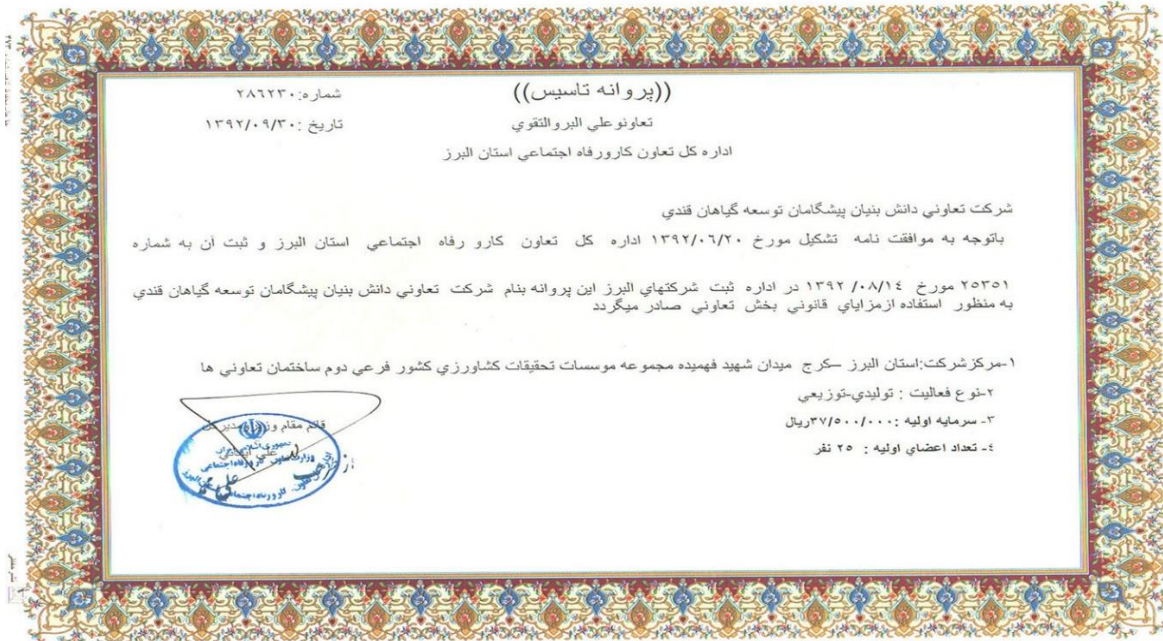 ((پروانه تاسیس))
شماره:۲۸۶۲۳۰
تعاونوعلي البروالتقوي
تاریخ :۱۳۹۲/۰۹/۳۰
اداره کل تعاون کارورفاه اجتماعي استان البرز
شرکت تعاوني دانش بنیان پیشگامان توسعه گیاهان قندي
باتوجه به موافقت نامه تشکیل مورخ ۱۳۹۲/۰۶/۲۰ اداره کل تعاون کارو رفاه اجتماعي استان البرز و ثبت آن به شماره
۲۵۳۵۱ مورخ ۱۳۹۲ /۰۸/۱۴ در اداره ثبت شرکتهاي البرز این پروانه بنام شرکت تعاوني دانش بنیان پیشگامان توسعه گیاهان قندي
به منظور استفاده ازمزایاي قانوني بخش تعاوني صادر میگردد
۱-مرکزشرکت:استان البرز –کرج میدان شهید فهمیده مجموعه موسسات تحقیقات کشاورزي کشور فرعي دوم ساختمان تعاوني ها
۲-نوع فعالیت : تولیدي-توزیعي
۳- سرمایه اولیه :۳۷/۵۰۰/۰۰۰ریال
٤- تعداد اعضاي اولیه : ۲۵ نفر
قائم مقام وزیر ومدیرکل